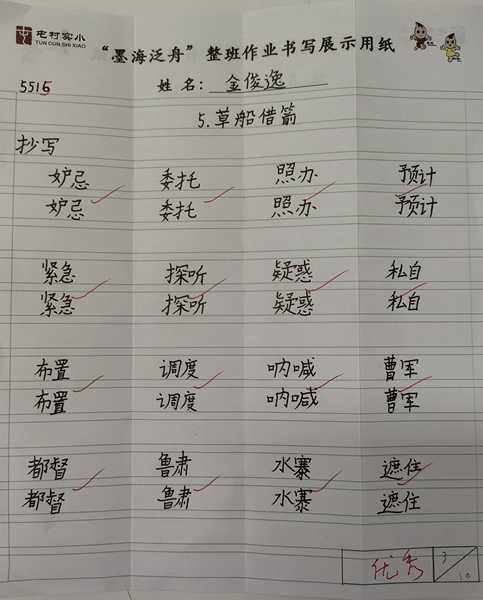 屯村实小
YUN CUN SHI XIAO
“墨海泛舟”整班作业书写展示用纸
5515 姓名: 金俊逸
5.草船借箭
抄写
妒忌 委托 照办 预计
妒忌 委托 照办 预计
紧急 探听 疑惑 私自
紧急 探听 疑惑 私自
布置 调度 呐喊 曹军
布置 调度 呐喊 曹军
都督 鲁肃 水寨 遮住
都督 鲁肃 水寨 遮住
优秀 3/10